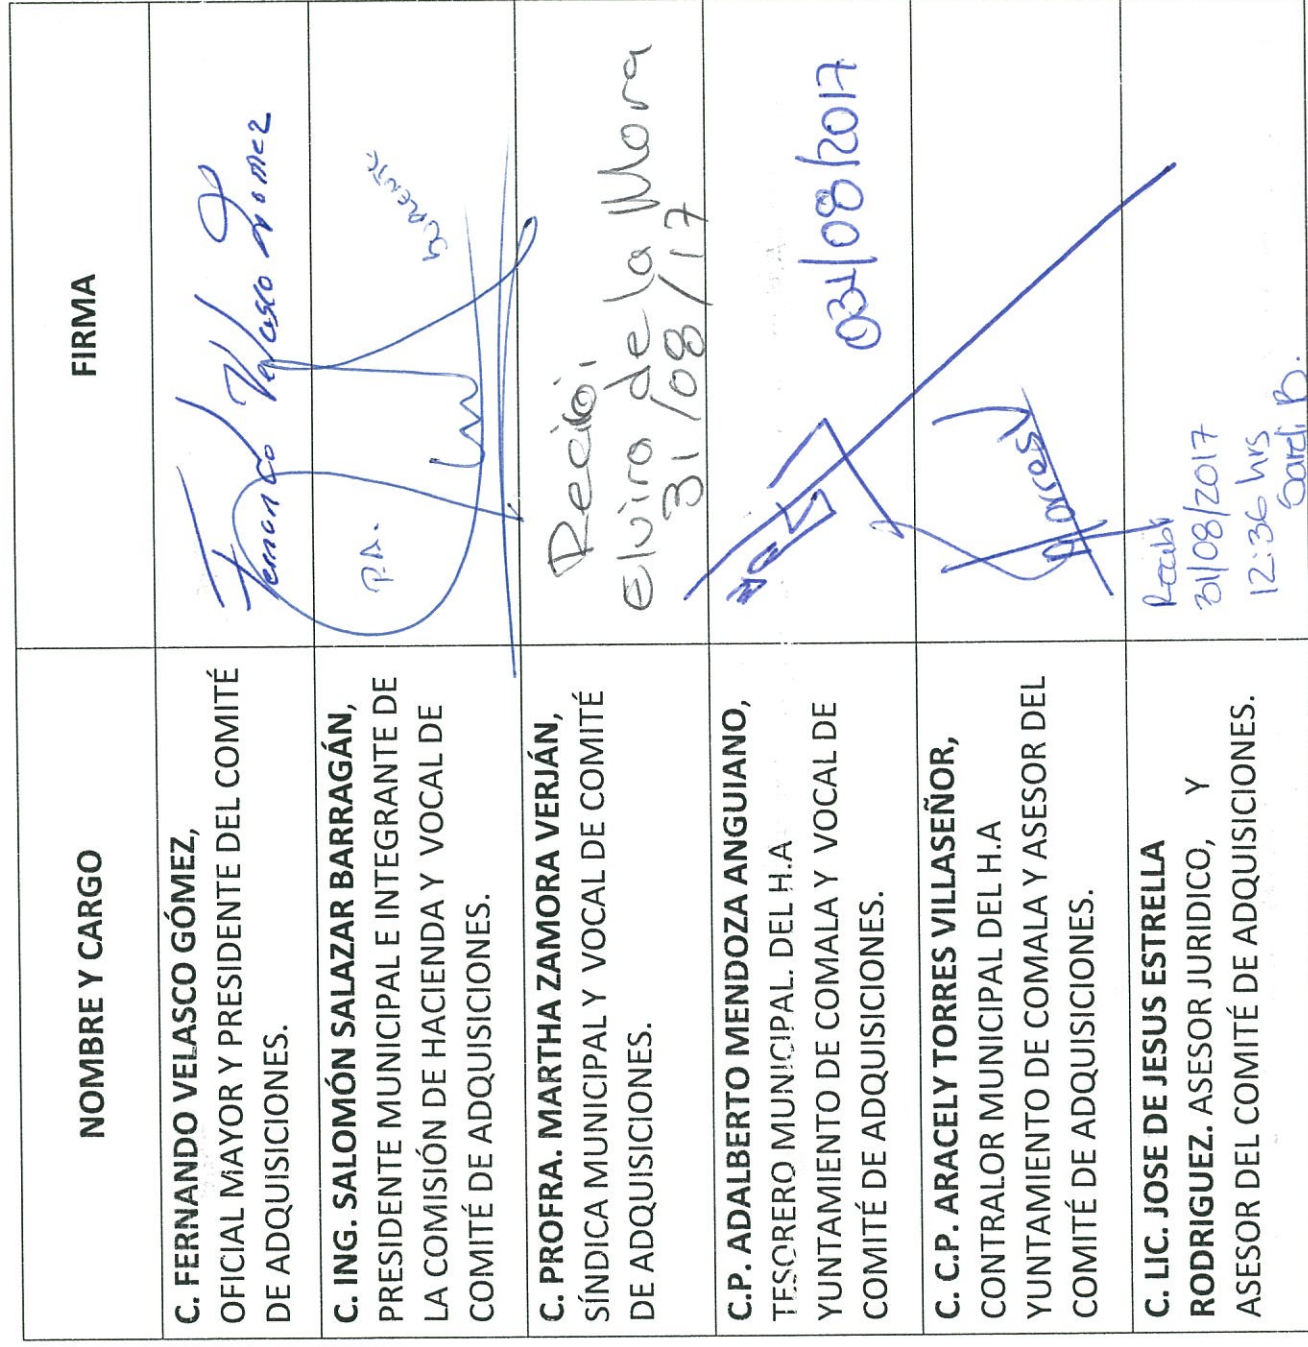 NOMBRE Y CARGO
FIRMA
C. FERNANDO VELASCO GÓMEZ,
OFICIAL MAYOR Y PRESIDENTE DEL COMITÉ
DE ADQUISICIONES.
Fernando Velasco Gomez
C. ING. SALOMÓN SALAZAR BARRAGÁN,
PRESIDENTE MUNICIPAL E INTEGRANTE DE
LA COMISIÓN DE HACIENDA Y VOCAL DE
COMITÉ DE ADQUISICIONES.
P.A.
C. PROFRA. MARTHA ZAMORA VERJÁN,
SÍNDICA MUNICIPAL Y VOCAL DE COMITÉ
DE ADQUISICIONES.
Recibí:
elvira de la Mora
31/08/17
C.P. ADALBERTO MENDOZA ANGUIANO,
TESORERO MUNICIPAL. DEL H.A
YUNTAMIENTO DE COMALA Y VOCAL DE
COMITÉ DE ADQUISICIONES.
031/08/2017
C. C.P. ARACELY TORRES VILLASEÑOR,
CONTRALOR MUNICIPAL DEL H.A
YUNTAMIENTO DE COMALA Y ASESOR DEL
COMITÉ DE ADQUISICIONES.
C. LIC. JOSE DE JESUS ESTRELLA
RODRIGUEZ. ASESOR JURIDICO, Y
ASESOR DEL COMITÉ DE ADQUISICIONES.
Recibí
31/08/2017
12:36 hrs
B.